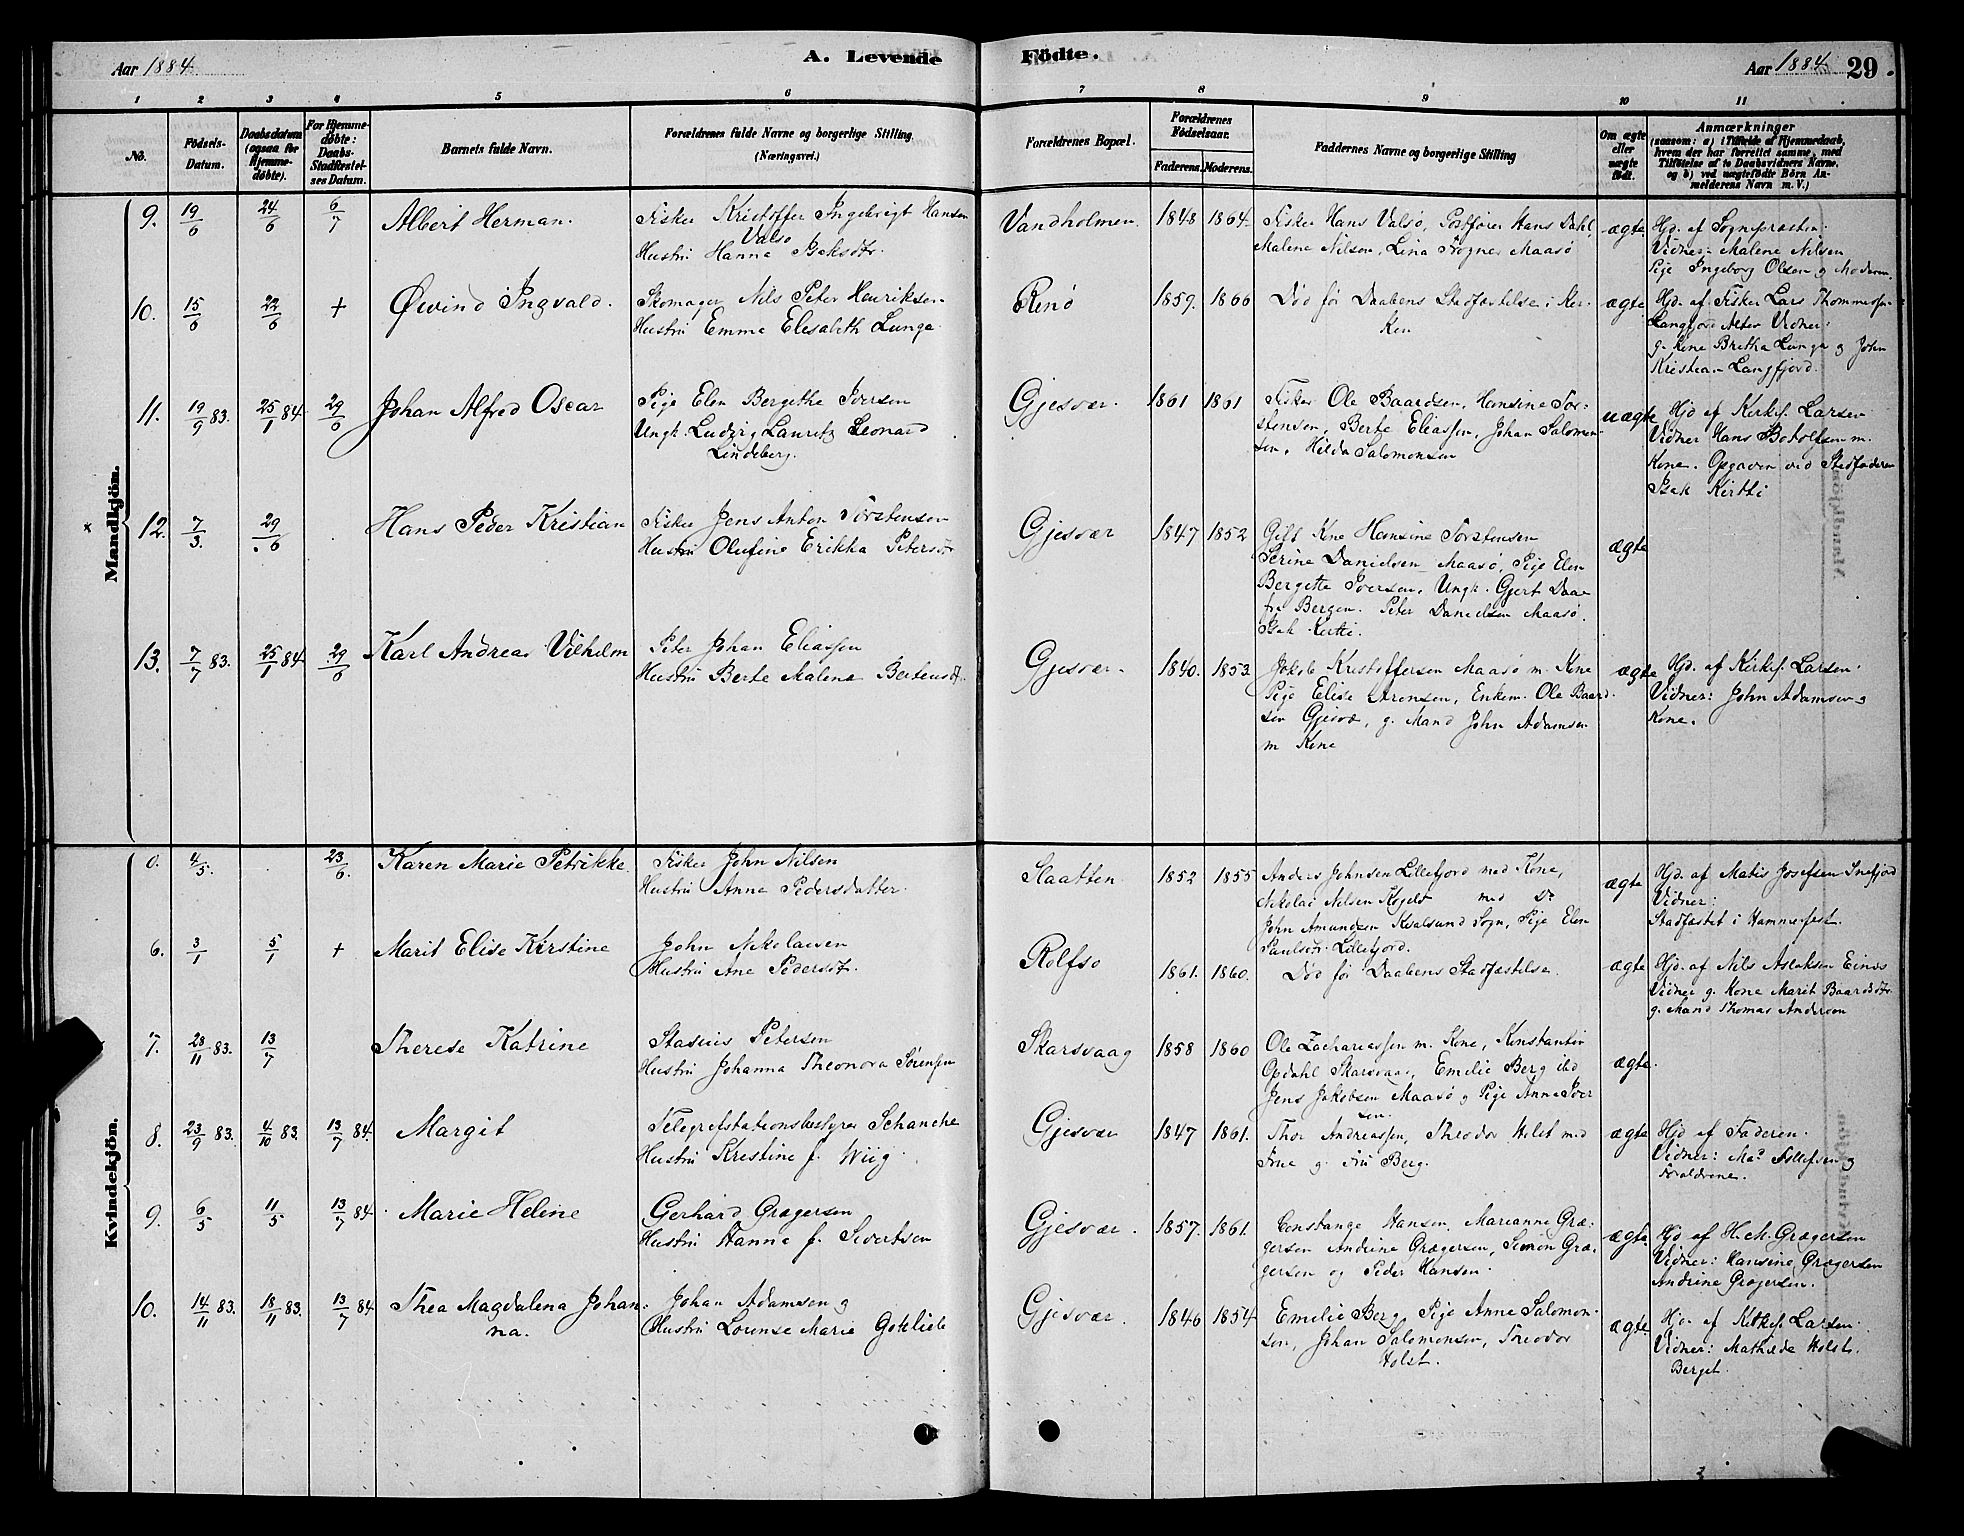 Aar 1884. A. Levende Födte. Aar 1884. 29.
1 2 3 4 5 6 7 8 9 10 11
No.
Födsels-Datum.
Daabsdatum (ogsaa for Hjemme-döbte).
For Hjemme-döbte: Daabs-Stadfæstel-ses Datum.
Barnets fulde Navn.
Forældrenes fulde Navne og borgerlige Stilling. (Næringsvei.)
Forældrenes Bopæl.
Forældrenes Födselsaar.
Faderens. Moderens.
Faddernes Navne og borgerlige Stilling
Om ægte eller uægte födt.
Anmærkninger
(saasom: a) i Tilfælde af Hjemmedaab, hvem der har forrettet samme, med Tilföielse af to Daabsvidners Navne, og b) ved uægtefödte Börn Anmelderens Navn m. V.)
Mandkjön.
9. 19/6 24/6 6/7 Albert Herman.
Fisker Kristoffer Ingebrigt Hansen
Valsø
Hustru Hanna Isaksdtr.
Vandholmen. 1848 1864
Fisker Hans Valsø, Postfører Hans Dahl,
Malene Nilsen, Lina Trogner Maasø
ægte
Hjd. af Sognepræsten.
Vidner: Malene Nilsen
Pige Ingeborg Olsen og Moderen.
10. 15/6 22/6 + Øivind Ingvald.
Skomager Nils Peter Henriksen
Hustru Emma Elisabeth Lunga
Renø 1859. 1866
Død før Daabens Stadfæstelse i Kir-
ken
ægte
Hjd. af Fisker Lars Thommesen
Langfjord Alten Vidner:
g. Kone Bretha Lunga og John
Kristian Langfjord.
11. 19/9 83. 25/1 84 29/6 Johan Alfred Oscar
Pige Elen Bergithe Iversen
Ungk. Ludvig Lauritz Leonard
Lindeberg.
Gjesvær. 1861 1861
Fisker Ole Baardsen, Hansine Tor-
stensen, Berte Eliassen, Johan Salomon-
sen, Hilda Salomonsen
uægte
Hjd af Kirkes. Larsen
Vidner Hans Botolfsen m.
Kone. Opgaven ved Stedfaderen
Isak Kirtti
12. 7/3. 29/6 Hans Peder Kristian
Fisker Jens Anton Torstensen
Hustru Olufine Erikka Petersdtr
Gjesvær 1847 1852
Gift Kone Hansine Torstensen
Serine Danielsen Maasø, Pige Elen
Bergitte Iversen, Ungk. Gjert Daae
fra Bergen. Peter Danielsen Maasø.
Isak Kirtti.
ægte
13. 7/7 83. 25/1 84 29/6 Karl Andreas Vilhelm
Peter Johan Eliassen
Hustru Berte Malena Bertensdtr.
Gjesvær 1840. 1853
Jakob Kristoffersen Maasø m. Kone
Pige Elise Arensen, Enkem. Ole Baard-
sen Gjesvær, g. Mand John Adamsen
m Kone
ægte
Hjd. af Kirkes. Larsen.
Vidner: John Adamsen og
Kone.
Kvindekjön.
0. 4/5. 23/6. Karen Marie Petrikke.
Fisker John Nilsen
Hustru Anne Pedersdatter.
Slaatten 1852 1855
Anders Johnsen Lillefjord med Kone,
Nikolai Nilsen med Do
John Amundsen Kvalsund Sogn, Pige Elen
Paulsdtr. Lillefjord.
ægte
Hjd. af Matis Josefsen Snefjord
Vidner:
Stadfæstet i Hammerfest.
6. 3/1 5/1 + Marit Elise Kirstine
John Nikolaisen
Hustru Ane Pedersdtr.
Rolfsø 1861. 1860.
Død før Daabens Stadfæstelse.
ægte
Hjd. af Nils Aslaksen Eines
Vidner g. Kone Marit Baardsdtr.
g. Mand Thomas Andersen
7. 28/11 83. 13/7 Therese Katrine
Stasius Petersen
Hustru Johanna Theonora Sørensen
Skarsvaag 1858 1860
Ole Zachariassen m. Kone, Konstantin
Opdahl Skarsvaag, Emilie Berg ibd
Jens Jakobsen Maasø og Pige Anna Iver
sen.
ægte.
8. 23/9 83. 4/10 83. 13/7 84. Margit
Telegrafstationsbestyrer Schanche
Hustru Kristine f. Wiig.
Gjesvær 1847 1861.
Thor Andreassen, Theodor Holst med
Frue g. Fru Berg.
ægte
Hjd af Faderen.
Vidner: Mad Tollefsen og
Forældrene.
9. 6/5 11/5 13/7 84. Marie Helene
Gerhard Grægersen
Hustru Hanna f. Sivertsen
Gjesvær. 1857. 1861.
Constanse Hansen, Marianne Græ-
gersen Andrine Grægersen, Simon Græ-
gersen og Peder Hansen.
ægte
Hjd af H. M. Grægersen
Vidner: Hansine Grægersen
Andrine Grægersen.
10. 14/11 83. 18/11 83. 13/7 84 Thea Magdalena Johan-
na.
Johan Adamsen og
Hustru Lorense Marie Gotlieb
Gjesvær. 1846 1854
Emilie Berg, Pige Anne Salomon-
sen, Johan Salomonsen, Theodor
Holst.
ægte
Hjd. af Kirkes. Larsen.
Vidner: Mathilde Holst.
Berget.